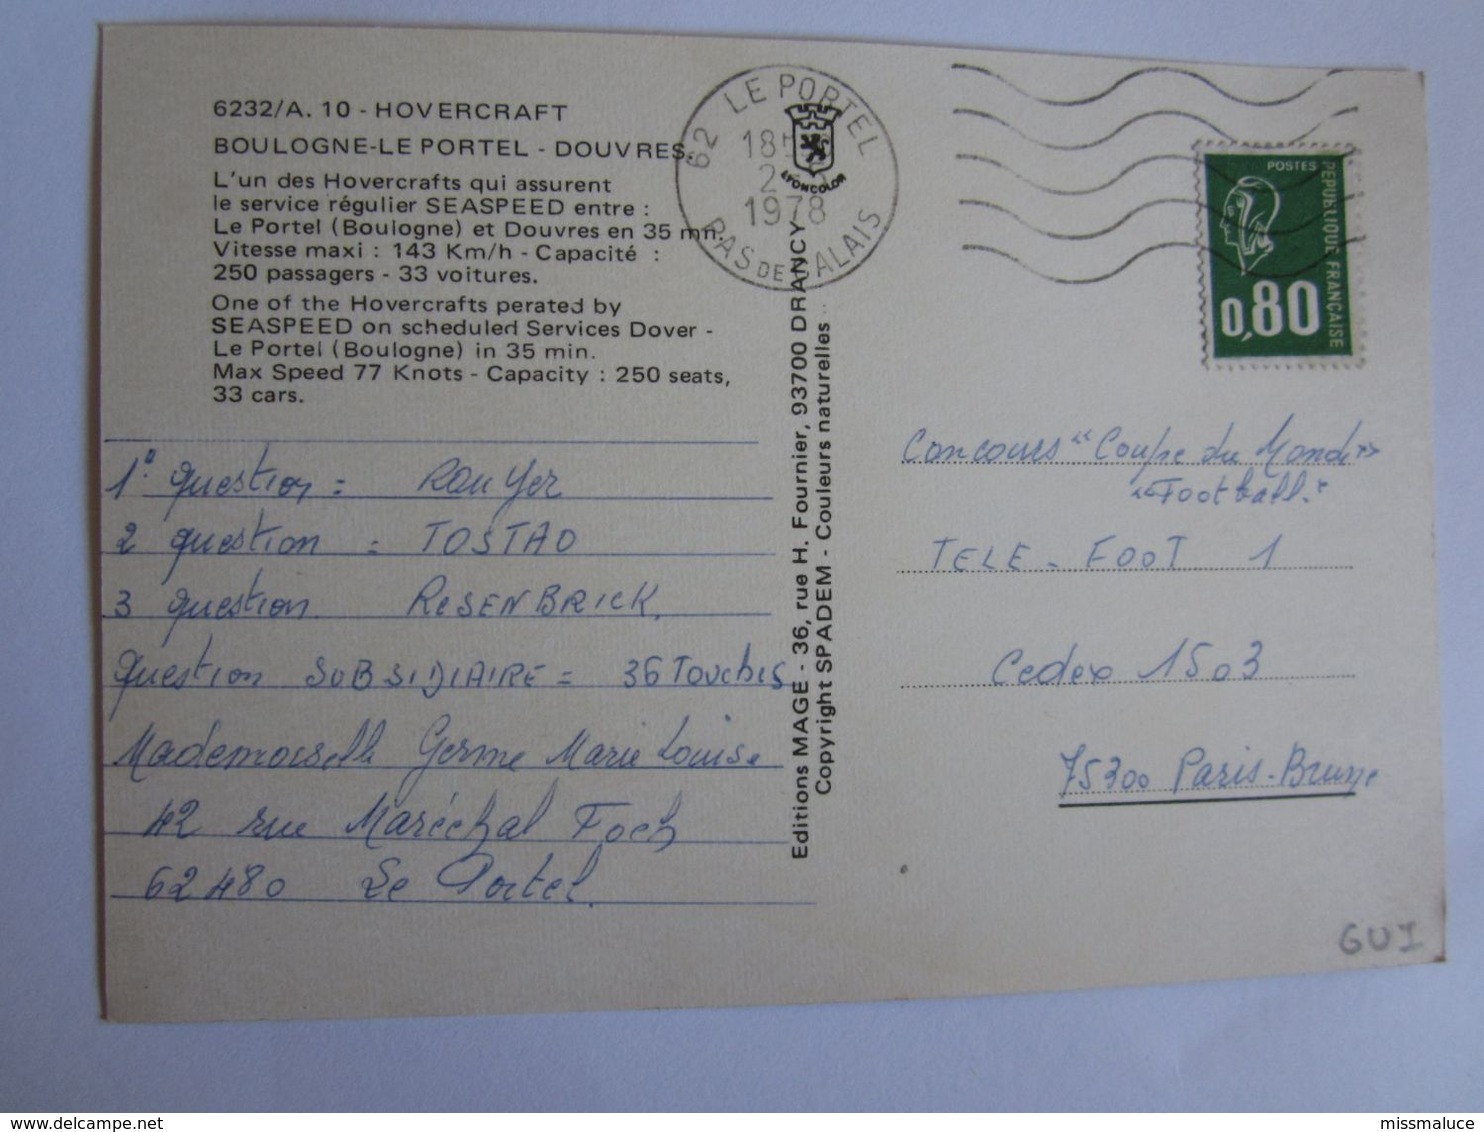 6232/A. 10 - HOVERCRAFT
BOULOGNE-LE PORTEL - DOUVRES.
L'un des Hovercrafts qui assurent
le service régulier SEASPEED entre :
Le Portel (Boulogne) et Douvres en 35 mn.
Vitesse maxi : 143 Km/h - Capacité :
250 passagers - 33 voitures.
One of the Hovercrafts perated by
SEASPEED on scheduled Services Dover -
Le Portel (Boulogne) in 35 min.
Max Speed 77 Knots - Capacity : 250 seats,
33 cars.
1° question = Rouyer
2 question = TOSTAO
3 question RESENBRICK.
question SUBSIDIAIRE = 36 Touches
Mademoiselle Germe Marie Louise
42 rue Maréchal Foch
62480 Le Portel.
Editions MAGE - 36, rue H. Fournier, 93700 DRANCY
Copyright SPADEM - Couleurs naturelles
LYONCOLOR
62 LE PORTEL
18
1978
PAS DE CALAIS
POSTES
REPUBLIQUE FRANÇAISE
0,80
Concours "Coupe du Monde"
"Football."
TELE - FOOT 1
Cedex 1503
75300 Paris-Brune
GUI
delcampe.net
missmaluce